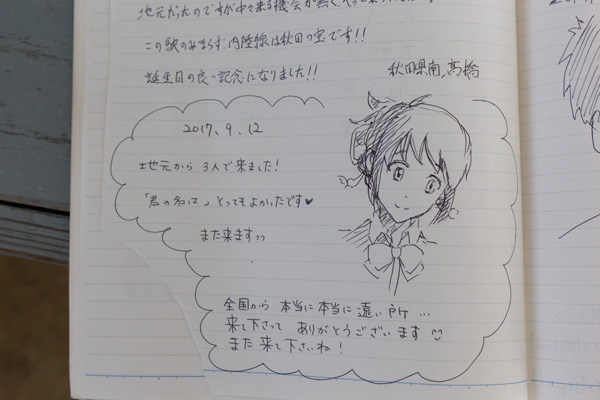 地元だったのですが中々来る機会が無く、
この駅のみならず、内陸線は秋田の宝です!!
誕生日の良い記念になりました!!
秋田県南,高橋
2017、9、12
地元から 3人で来ました!
「君の名は」とってもよかったです♥
また来ますッッ
全国から 本当に本当に遠い所…
来て下さって ありがとうございます
また来て下さいね!